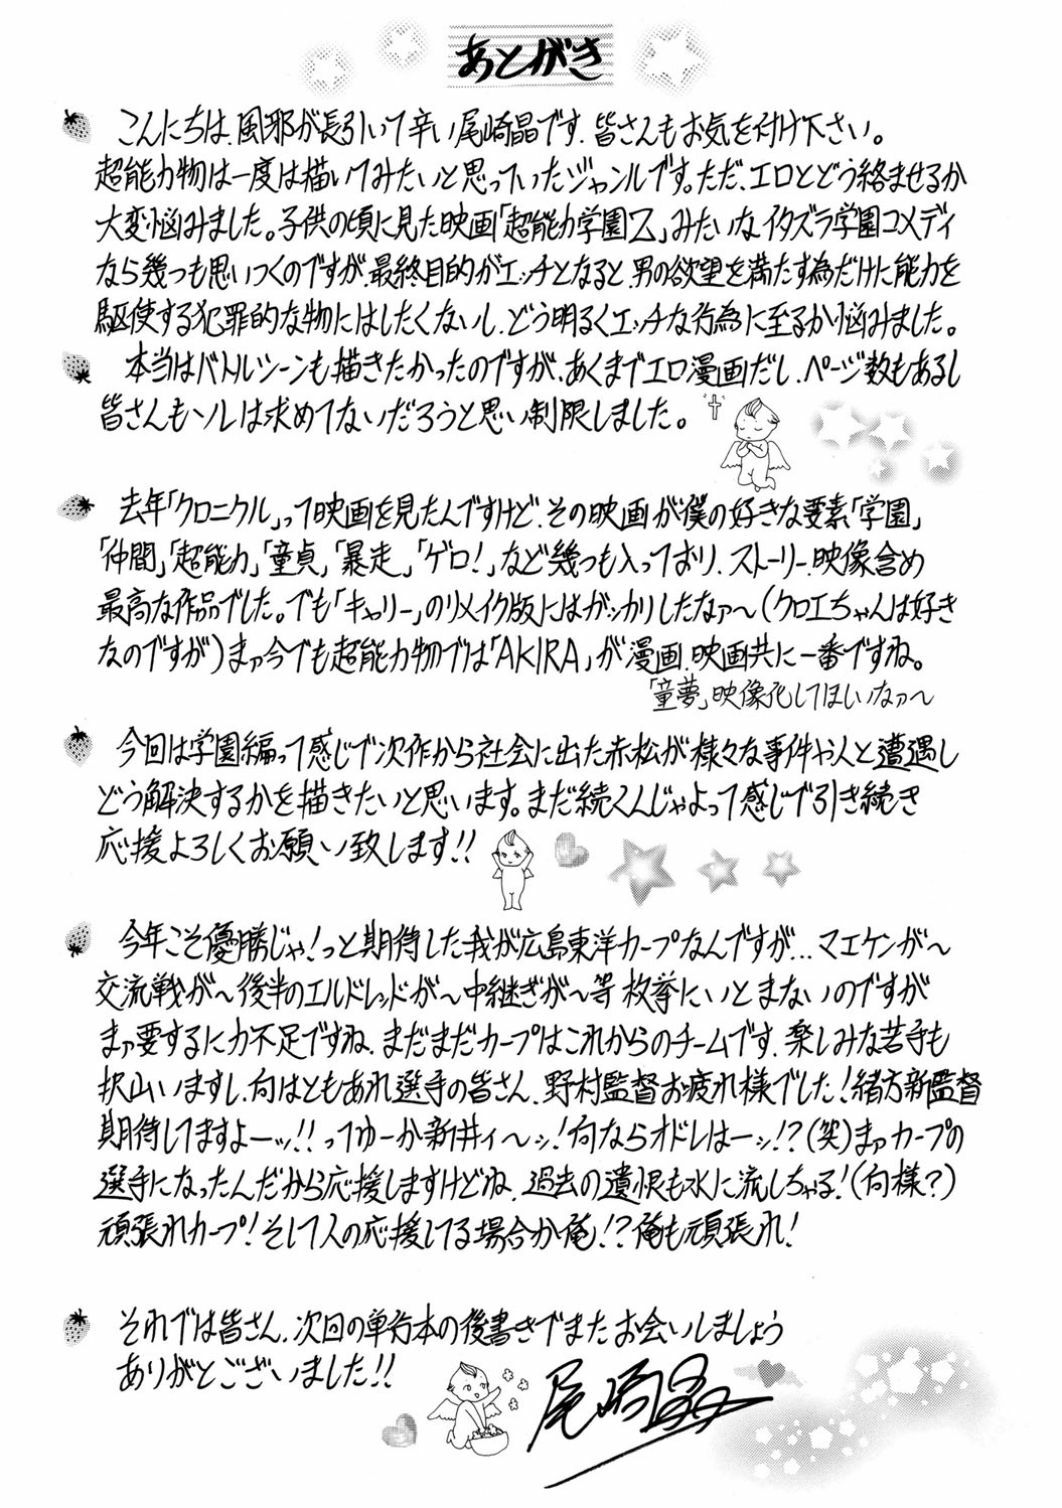 あとがき
こんにちは、風邪が長引いて辛い尾崎晶です、皆さんもお気を付け下さい。
超能力物は一度は描いてみたいと思っていたジャンルです。ただ、エロとどう絡ませるか
大変悩みました。子供の頃に見た映画「超能力学園Z」みたいな、イタズラ学園コメディ
なら幾つも思いつくのですが、最終目的がエッチとなると、男の欲望を満たす為だけに能力を
駆使する犯罪的な物にはしたくないし、どう明るくエッチな行為に至るか悩みました。
本当はバトルシーンも描きたかったのですが、あくまでエロ漫画だし、ページ数もあるし
皆さんもソレは求めてないだろうと思い制限しました。
去年「クロニクル」って映画を見たんですけど、その映画が僕の好きな要素「学園」
「仲間」「超能力」「童貞」「暴走」「ゲロ!」など幾つも入っており、ストーリー、映像含め
最高な作品でした。でも「キャリー」のリメイク版にはガッカリしたなァ〜(クロエちゃんは好き
なのですが)まァ今でも超能力物では「AKIRA」が漫画、映画共に一番ですね。
「童夢」映像化してほしいなァ〜
今回は学園編って感じで次作から社会に出た赤松が様々な事件や人と遭遇し
どう解決するかを描きたいと思います。まだ続くんじゃよって感じで引き続き
応援よろしくお願い致します!!
今年こそ優勝じゃ!っと期待した我が広島東洋カープなんですが…マエケンが〜
交流戦が〜後半のエルドレッドが〜中継ぎが〜等枚挙にいとまないのですが
まァ要するに力不足ですね、まだまだカープはこれからのチームです、楽しみな若手も
沢山いますし、何はともあれ選手の皆さん、野村監督お疲れ様でした!緒方新監督
期待してますよーッ!!ってゆーか新井ィ〜ッ!何ならオドレはーッ!?(笑)まァカープの
選手になったんだから応援しますけどね、過去の遺恨も水に流しちゃる!(何様?)
頑張れカープ!そして人の応援してる場合か俺!?俺も頑張れ!
それでは皆さん、次回の単行本の後書きでまたお会いしましょう
ありがとございました!!
尾崎晶